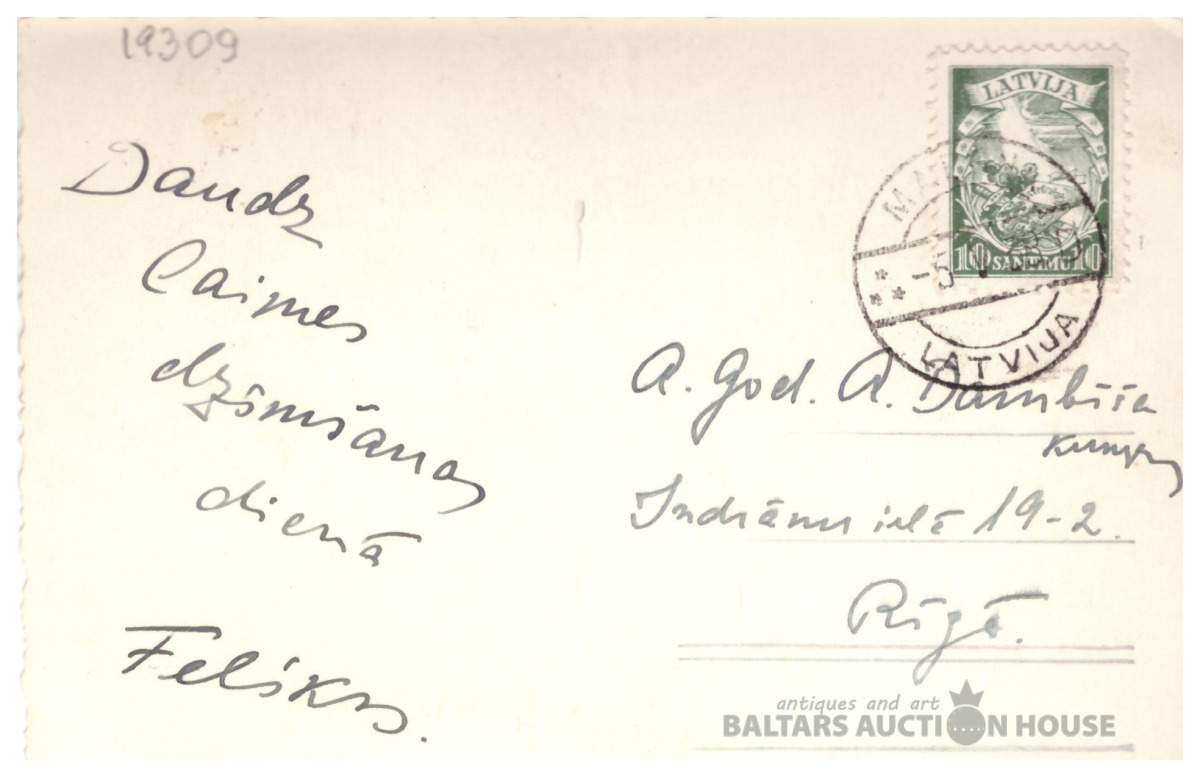 19309
LATVIJA
10 SANTIMU 10
LATVIJA
Daudz
laimes
dzimšanas
dienā
Felikss.
A. God. A. Dambīša
kungam
Indrānu ielā 19-2.
Rīgā.
antiques and art
BALTARS AUCTION HOUSE